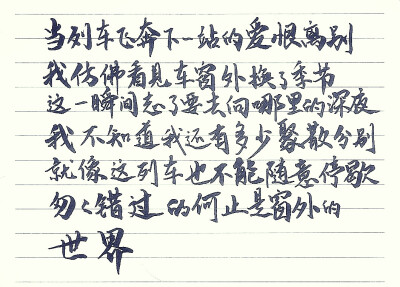 当列车飞奔下一站的爱恨离别
我仿佛看见车窗外换了季节
这一瞬间忘了要去向哪里的深夜
我不知道我还有多少聚散分别
就像这列车也不能随意停歇
匆匆错过的何止是窗外的
世界